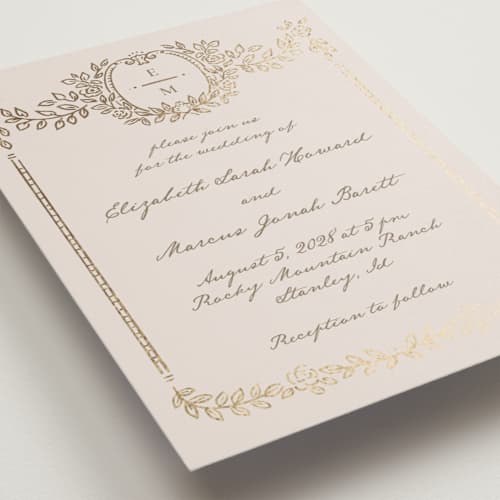 E
M
please join us
for the wedding of
Elizabeth Sarah Howard
and
Marcus Jonah Barett
August 5, 2028 at 5 pm
Rocky Mountain Ranch
Stanley, Id
Reception to follow